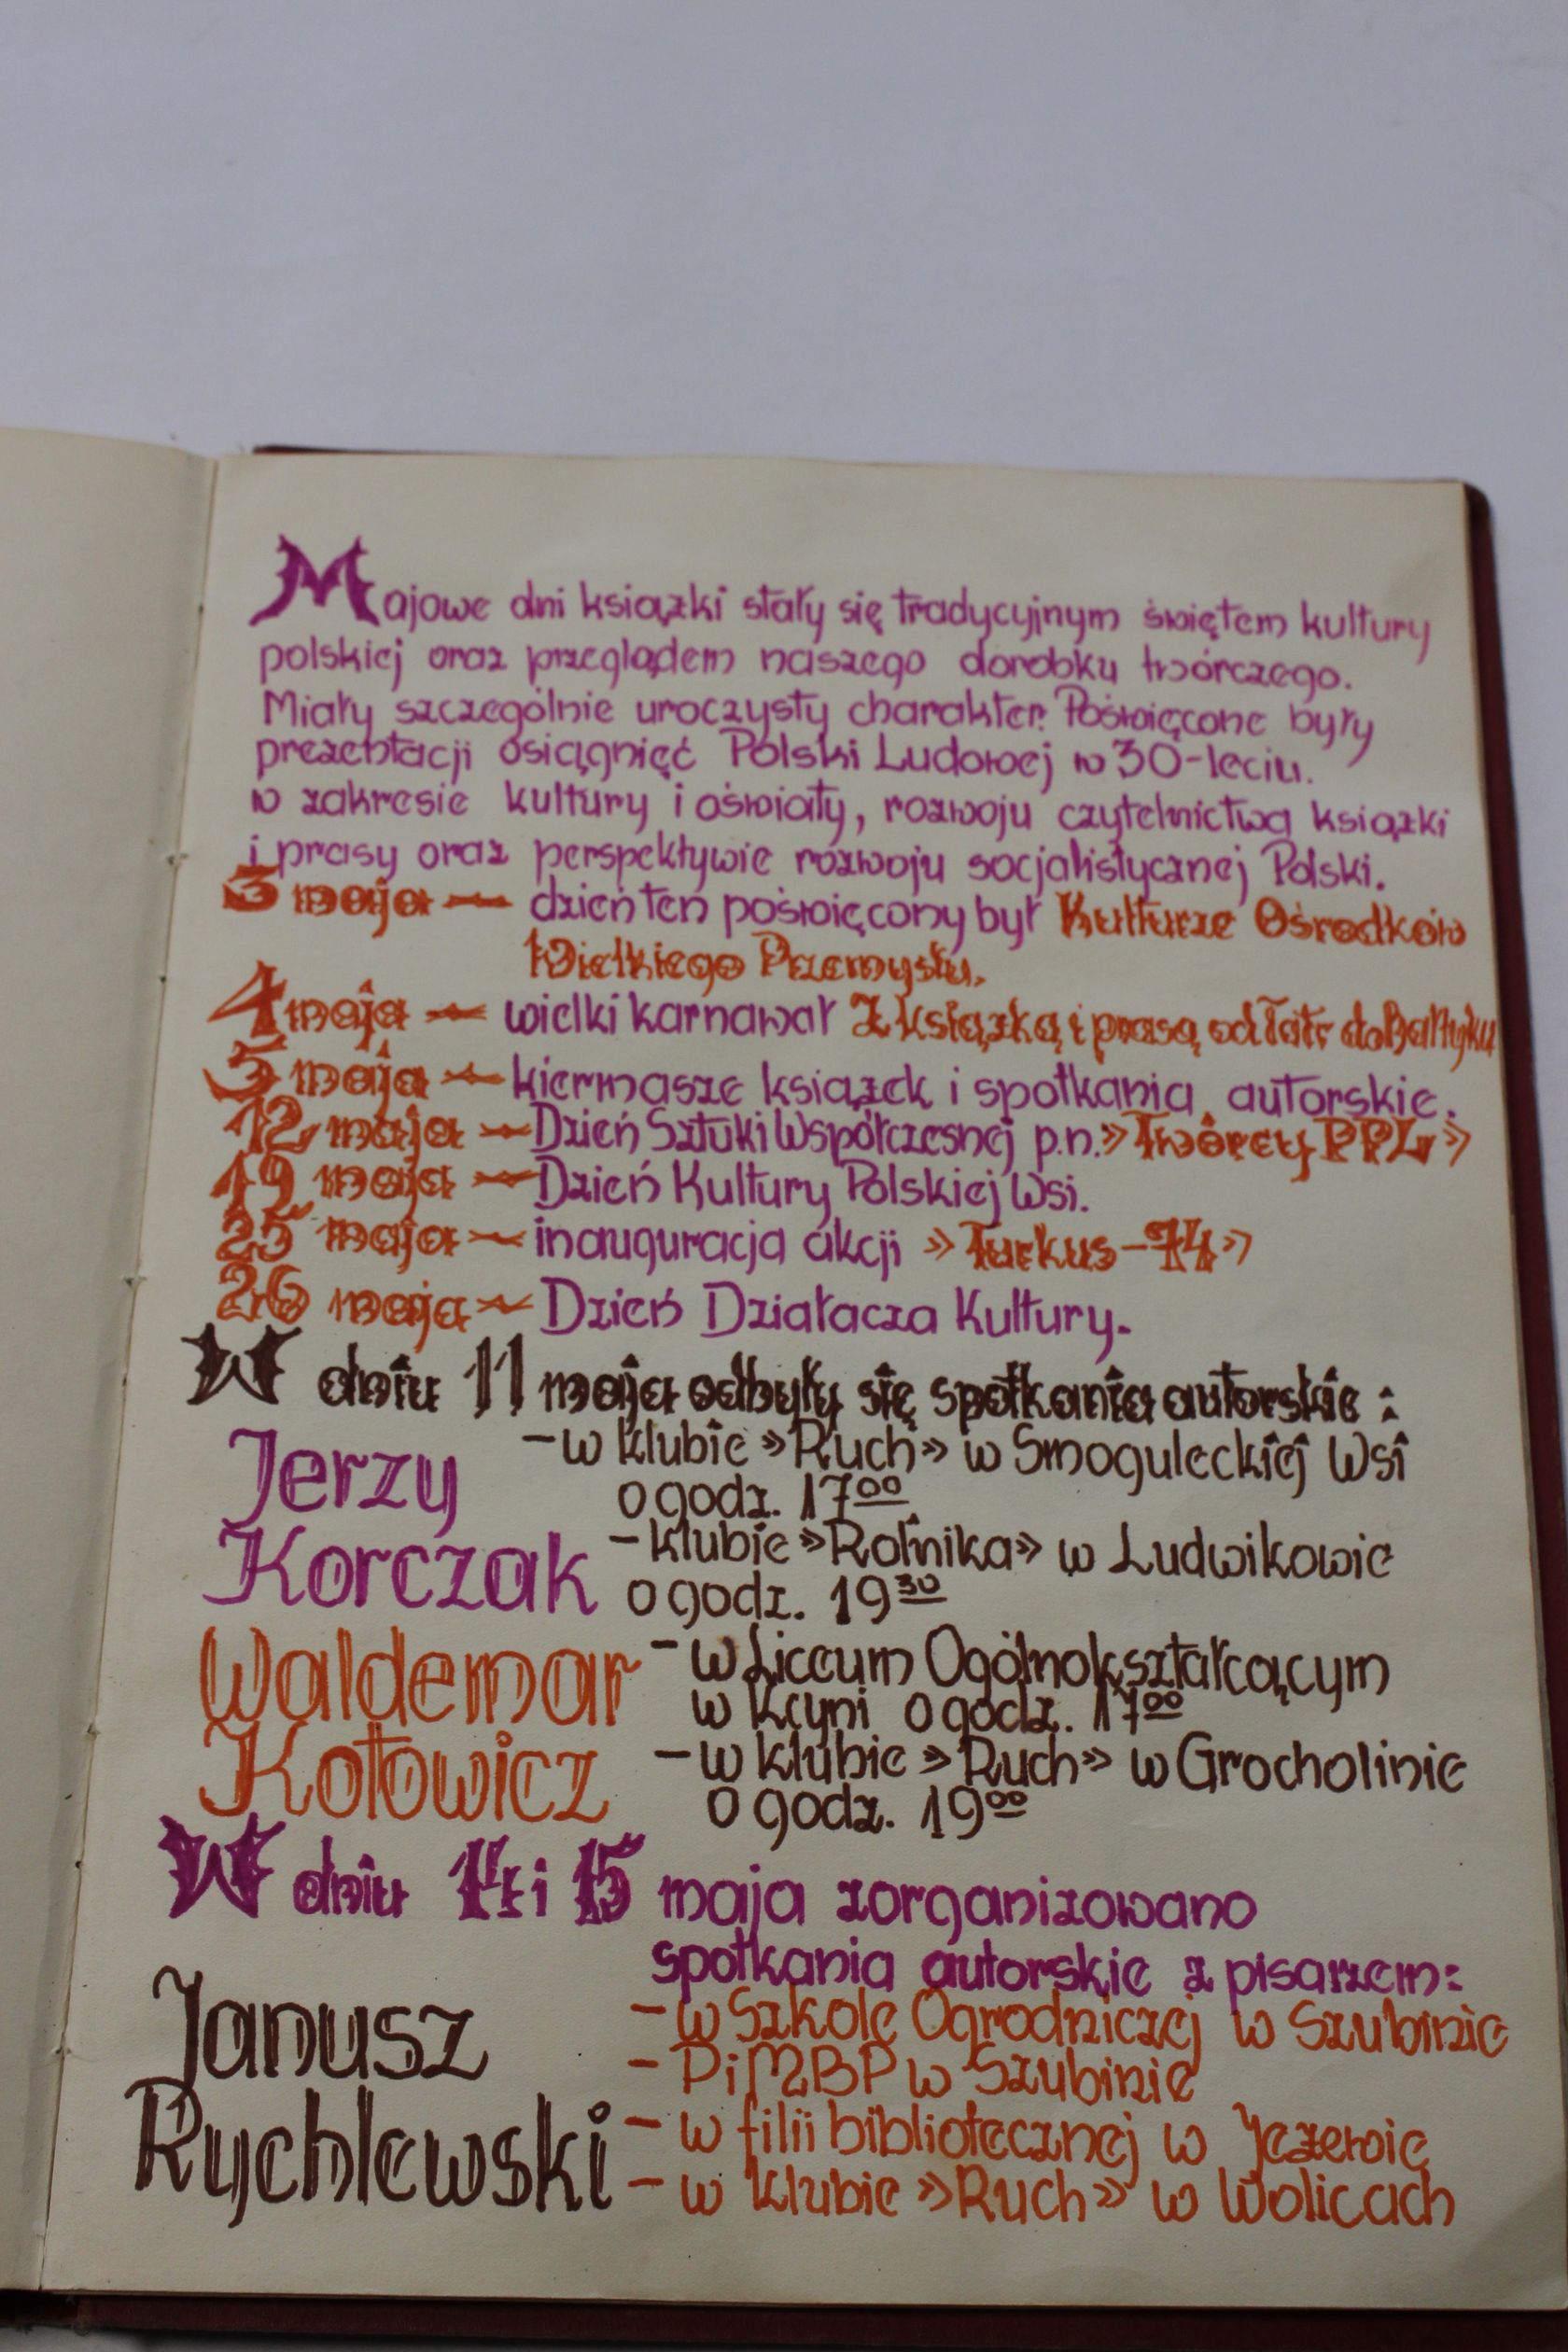 Majowe dni książki stały się tradycyjnym świętem kultury
polskiej oraz przeglądem naszego dorobku twórczego.
Miały szczególnie uroczysty charakter. Poświęcone były
prezentacji osiągnięć Polski Ludowej w 30-leciu.
w zakresie kultury i oświaty, rozwoju czytelnictwa książki
i prasy oraz perspektywie rozwoju socjalistycznej Polski.
3 maja — dzień ten poświęcony był Kulturze Ośrodków
Wielkiego Przemysłu.
4 maja — wielki karnawał Z książką i prasą od Tatr do Bałtyku
5 maja — kiermasze książek i spotkania autorskie.
12 maja — Dzień Sztuki Współczesnej p.n. »Twórcy PPL»
19 maja — Dzień Kultury Polskiej Wsi.
25 maja — inauguracja akcji »Turkus-74»
26 maja — Dzień Działacza Kultury.
W dniu 11 maja odbyły się spotkania autorskie:
Jerzy – w klubie »Ruch» w Smoguleckiej Wsi
o godz. 17⁰⁰
Korczak – klubie »Rolnika» w Ludwikowie
o godz. 19³⁰
Waldemar – w Liceum Ogólnokształcącym
w Kcyni o godz. 17⁰⁰
Kotowicz – w klubie »Ruch» w Grocholinie
o godz. 19⁰⁰
W dniu 14 i 15 maja zorganizowano
spotkania autorskie z pisarzem:
Janusz – w Szkole Ogrodniczej w Szubinie
– PiMBP w Szubinie
Rychlewski – w filii bibliotecznej w Jezewie
– w klubie »Ruch» w Wolicach